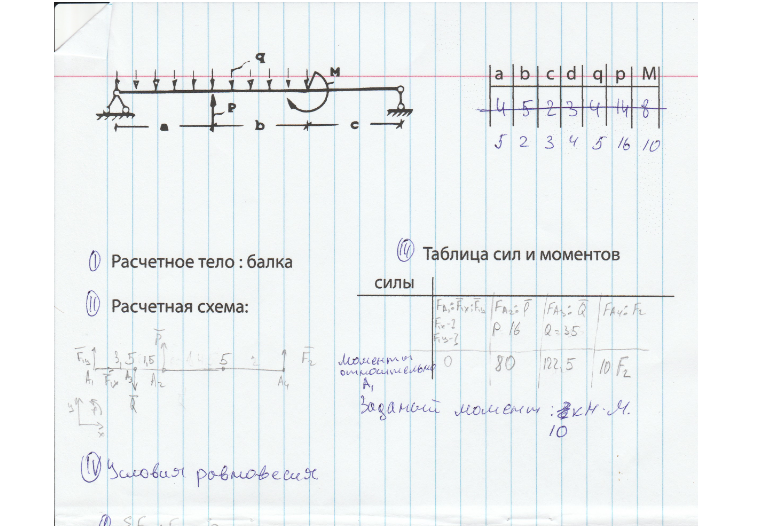 q
M
P
a b c
a b c d q p M
4 5 2 3 4 14 8
5 2 3 4 5 16 10
I Расчетное тело : балка
II Расчетная схема:
P
F1y 3,5 1,5 5 2 F2
A1 F1x A3 A2 A4
Q
y x
III Таблица сил и моментов
силы
FA1=F1x+F1y FA2=P FA3=Q FA4=F2
F1x-? P 16 Q=35
F1y-?
Моменты относительно A1 0 80 122,5 10F2
Заданый момент : кН·М.
10
IV Условия равновесия